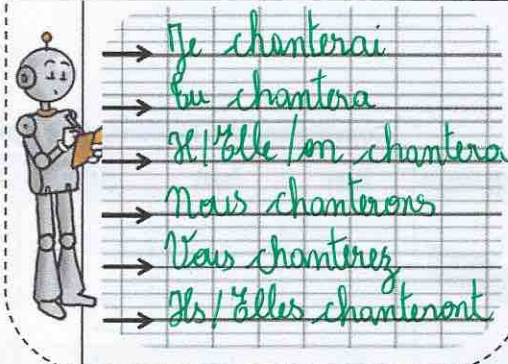 Je chanterai
Tu chantera
Il/Elle/on chantera
Nous chanterons
Vous chanterez
Ils/Elles chanteront